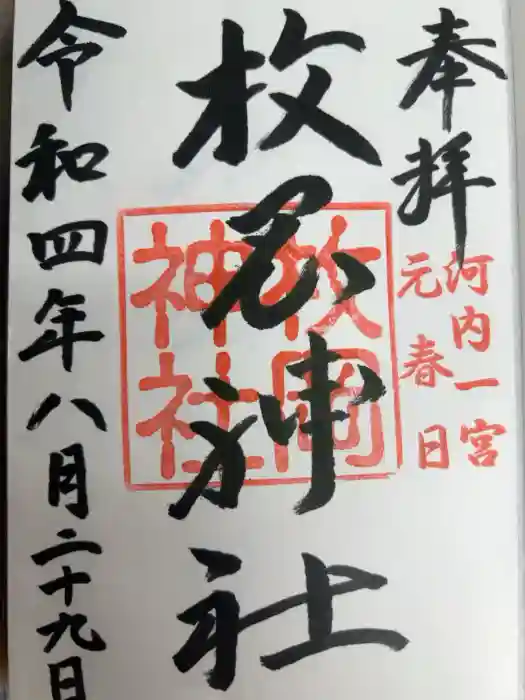 奉拝
河内一宮
元春日
枚岡神社
枚岡
神社
令和四年八月二十九日